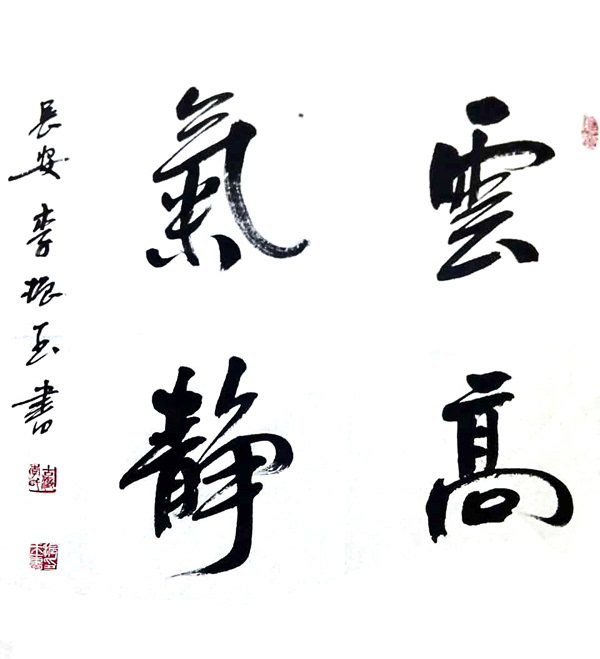 雲高
氣静
長安 李振玉書